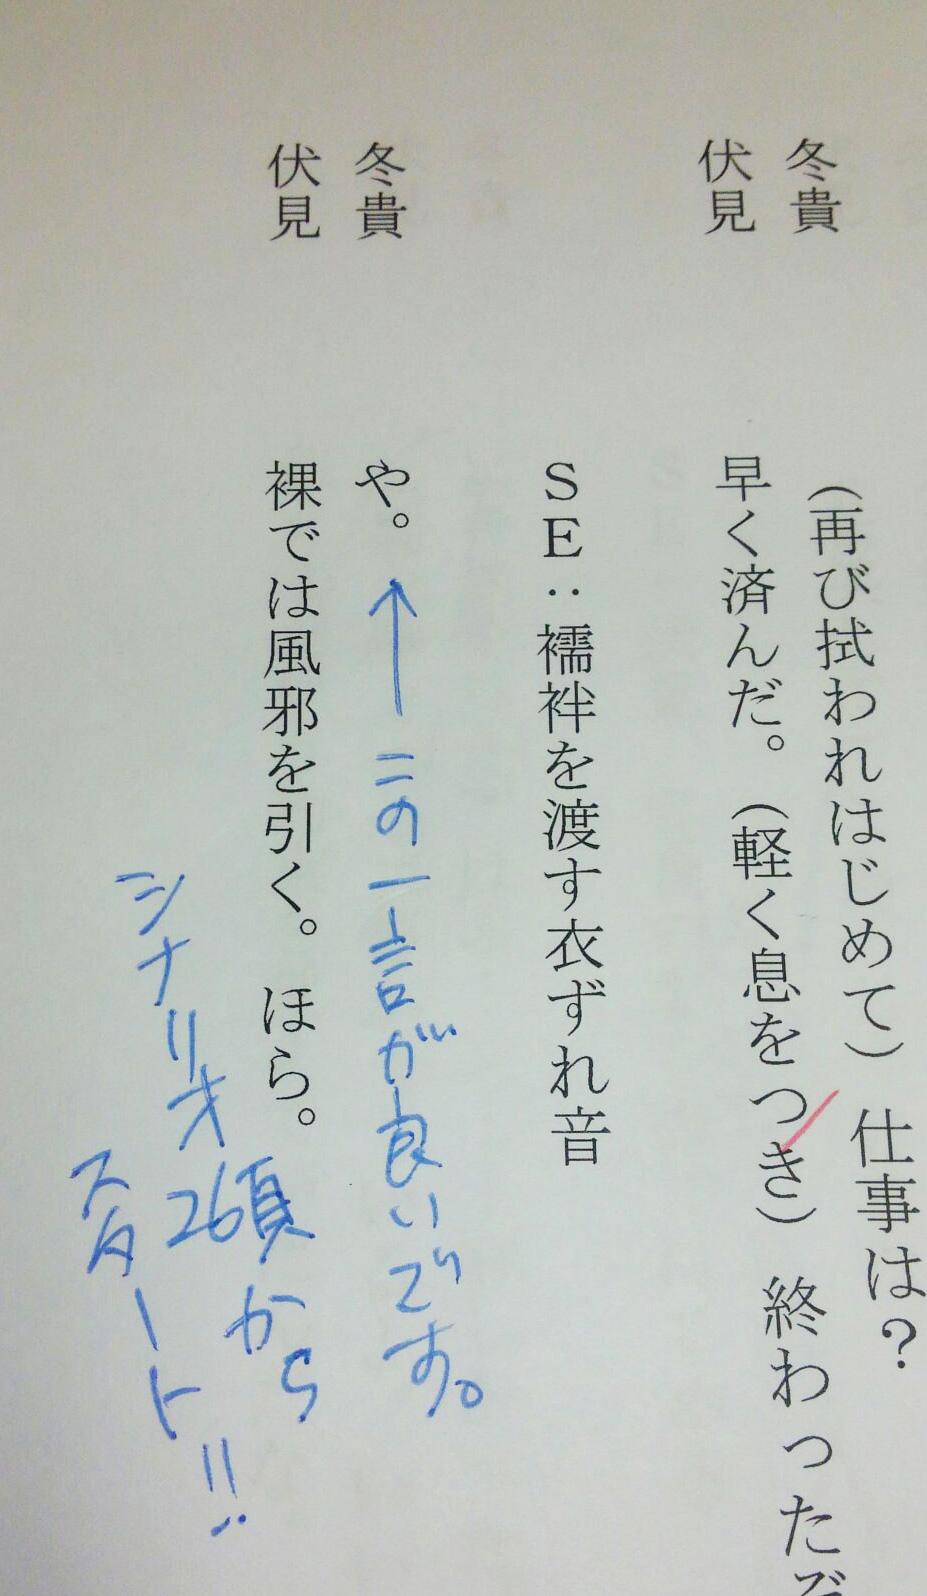 冬貴　（再び拭われはじめて）　仕事は？
伏見　早く済んだ。（軽く息をつき）　終わったぞ
ＳＥ：襦袢を渡す衣ずれ音
冬貴　や。
←この一言が良いです。
伏見　裸では風邪を引く。　ほら。
シナリオ26頁から
スタート!!